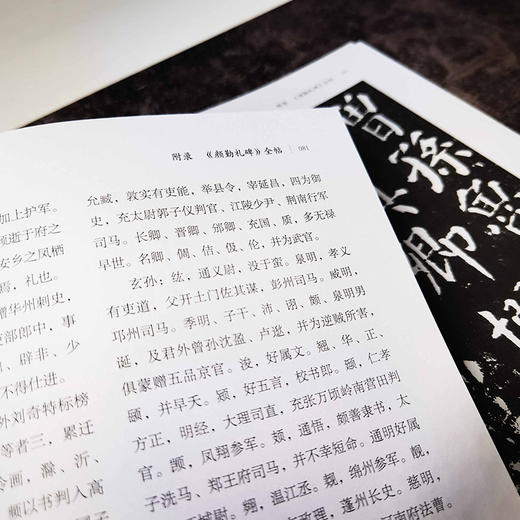 附录 《颜勤礼碑》全帖 081
加上护军。
顿逝于府之
安乡之凤栖
焉，礼也。
赠华州刺史，
吏部郎中，事
、辟非、少
不得仕进。
外刘奇特标榜
等者三，累迁
滁、沂、
以书判入高
允臧，敦实有吏能，举县令，宰延昌，四为御
史，充太尉郭子仪判官、江陵少尹、荆南行军
司马。长卿、晋卿、邠卿、充国、质，多无禄
早世。名卿、倜、佶、伋、伦，并为武官。
玄孙：纮，通义尉，没于蛮。泉明，孝义
有吏道，父开土门佐其谋，彭州司马。威明，
邛州司马。季明、子干、沛、诩、颇、泉明男
诞，及君外曾孙沈盈、卢逖，并为逆贼所害，
俱蒙赠五品京官。浚，好属文。翘、华、正、
颐，并早夭。颎，好五言，校书郎。颋，仁孝
方正，明经，大理司直，充张万顷岭南营田判
官。觊，凤翔参军。颎，通悟，颇善隶书，太
子洗马、郑王府司马，并不幸短命。通明好属
城尉。翙，温江丞。觌，绵州参军。靓，
政理，蓬州长史。慈明，
南府法曹。
曾孫
卿